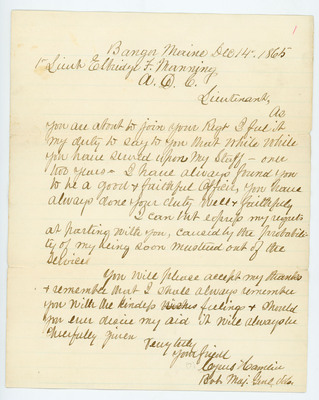 1
Bangor Maine Dec 14. 1865
Lieut Elbridge F. Manning
A. D. C.
Lieutenant,
As
you are about to join your Regt I feel it
my duty to say to you that while while
you have served upon my Staff – over
two years – I have always found you
to be a good & faithful officer, you have
always done your duty well & faithfully
I can but express my regrets
at parting with you, caused by the probabili-
ty of my being soon mustered out of the
Service
You will please accept my thanks
& remember that I shall always remember
you with the kindest wishes feelings & should
you ever desire my aid it will always be
cheerfully given
Very truly
Your friend
Cyrus Hamlin
Bvt. Maj. Genl. Vols.